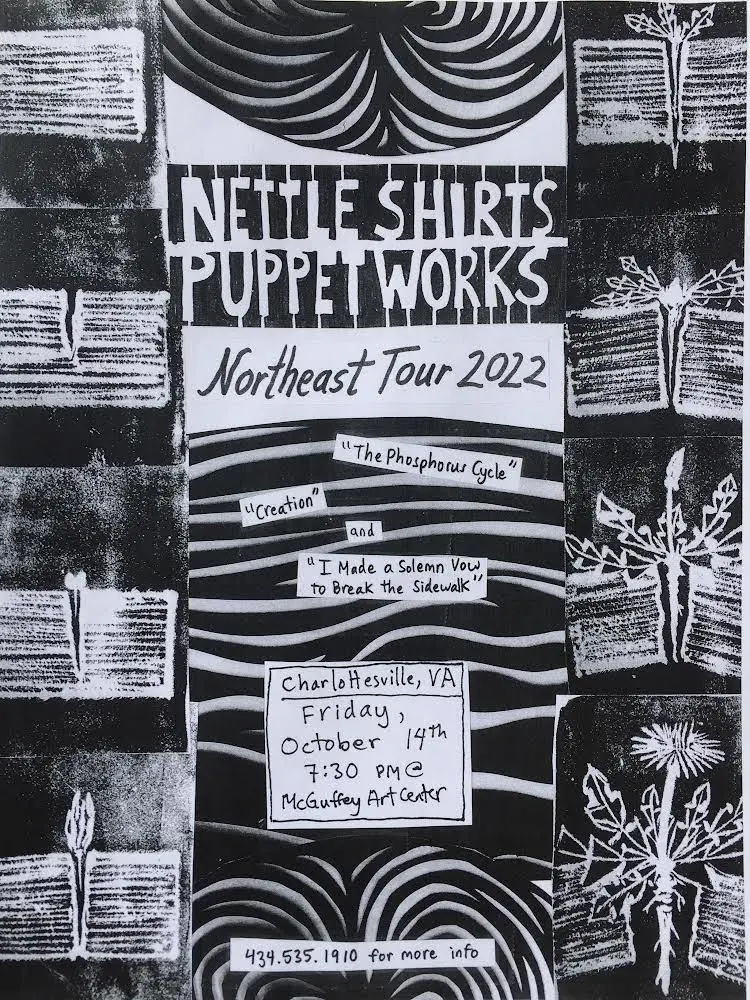 NETTLE SHIRTS
PUPPET WORKS
Northeast Tour 2022
"The Phosphorus Cycle"
"Creation"
and
"I Made a Solemn Vow
to Break the Sidewalk"
Charlottesville, VA
Friday,
October 14th
7:30 PM @
McGuffey Art Center
434.535.1910 for more info